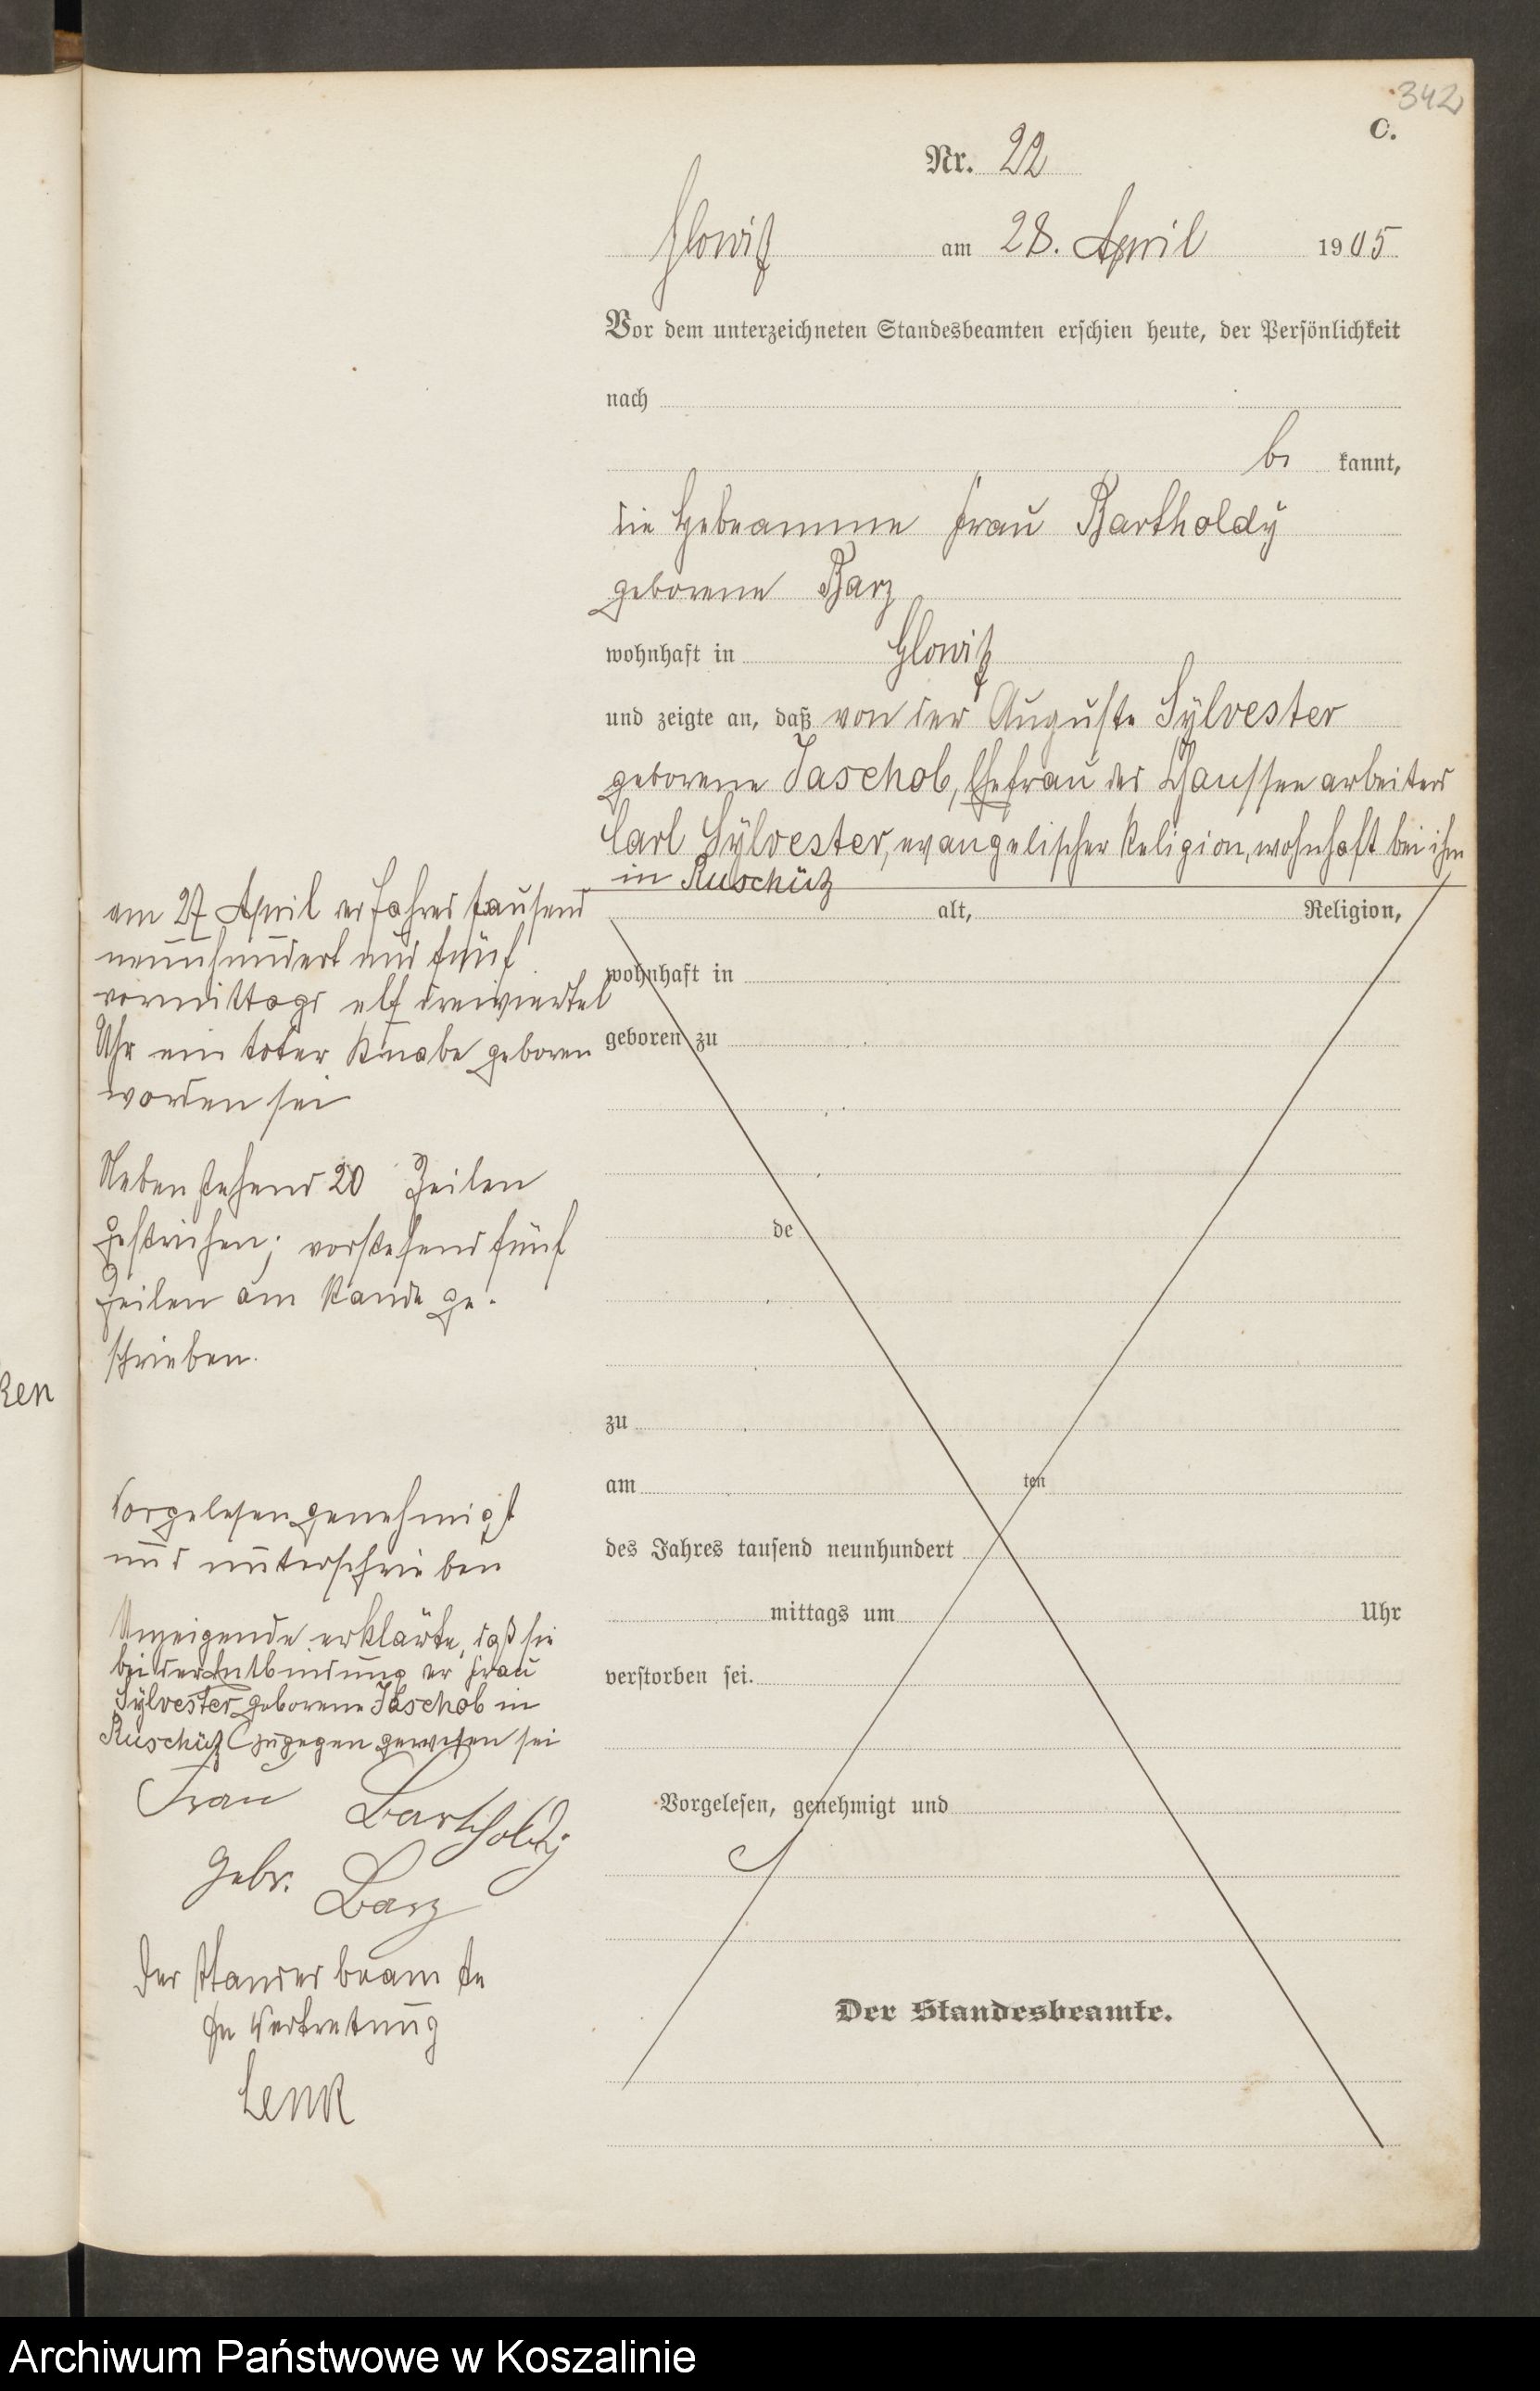 342
C.
Nr. 22
Glowitz am 28. April 1905
Vor dem unterzeichneten Standesbeamten erschien heute, der Persönlichkeit
nach
be kannt,
die Hebeamme Frau Bartholdy
geborene Barz
wohnhaft in Glowitz
und zeigte an, daß von der Auguste Sylvester
geborene Jaschob, Ehefrau des Chausseearbeiters
Carl Sylvester, evangelischer Religion, wohnhaft bei ihm
in Ruschütz
alt, Religion,
wohnhaft in
geboren zu
de
zu
am ten
des Jahres tausend neunhundert
mittags um Uhr
verstorben sei.
Vorgelesen, genehmigt und
Der Standesbeamte.
am 27 April des Jahres tausend
neunhundert und fünf
vormittags elf dreiviertel
Uhr ein toter Knabe geboren
worden sei
Nebenstehend 20 Zeilen
gestrichen; vorstehend fünf
Zeilen am Rande ge-
schrieben.
Vorgelesen genehmigt
und unterschrieben
Anzeigende erklärte, daß sie
bei der Entbindung der Frau
Sylvester geborene Jaschob in
Ruschütz zugegen gewesen sei
Frau Bartholdy
gebr. Barz
Der Standesbeamte
In Vertretung
Lenk
ken
Archiwum Państwowe w Koszalinie